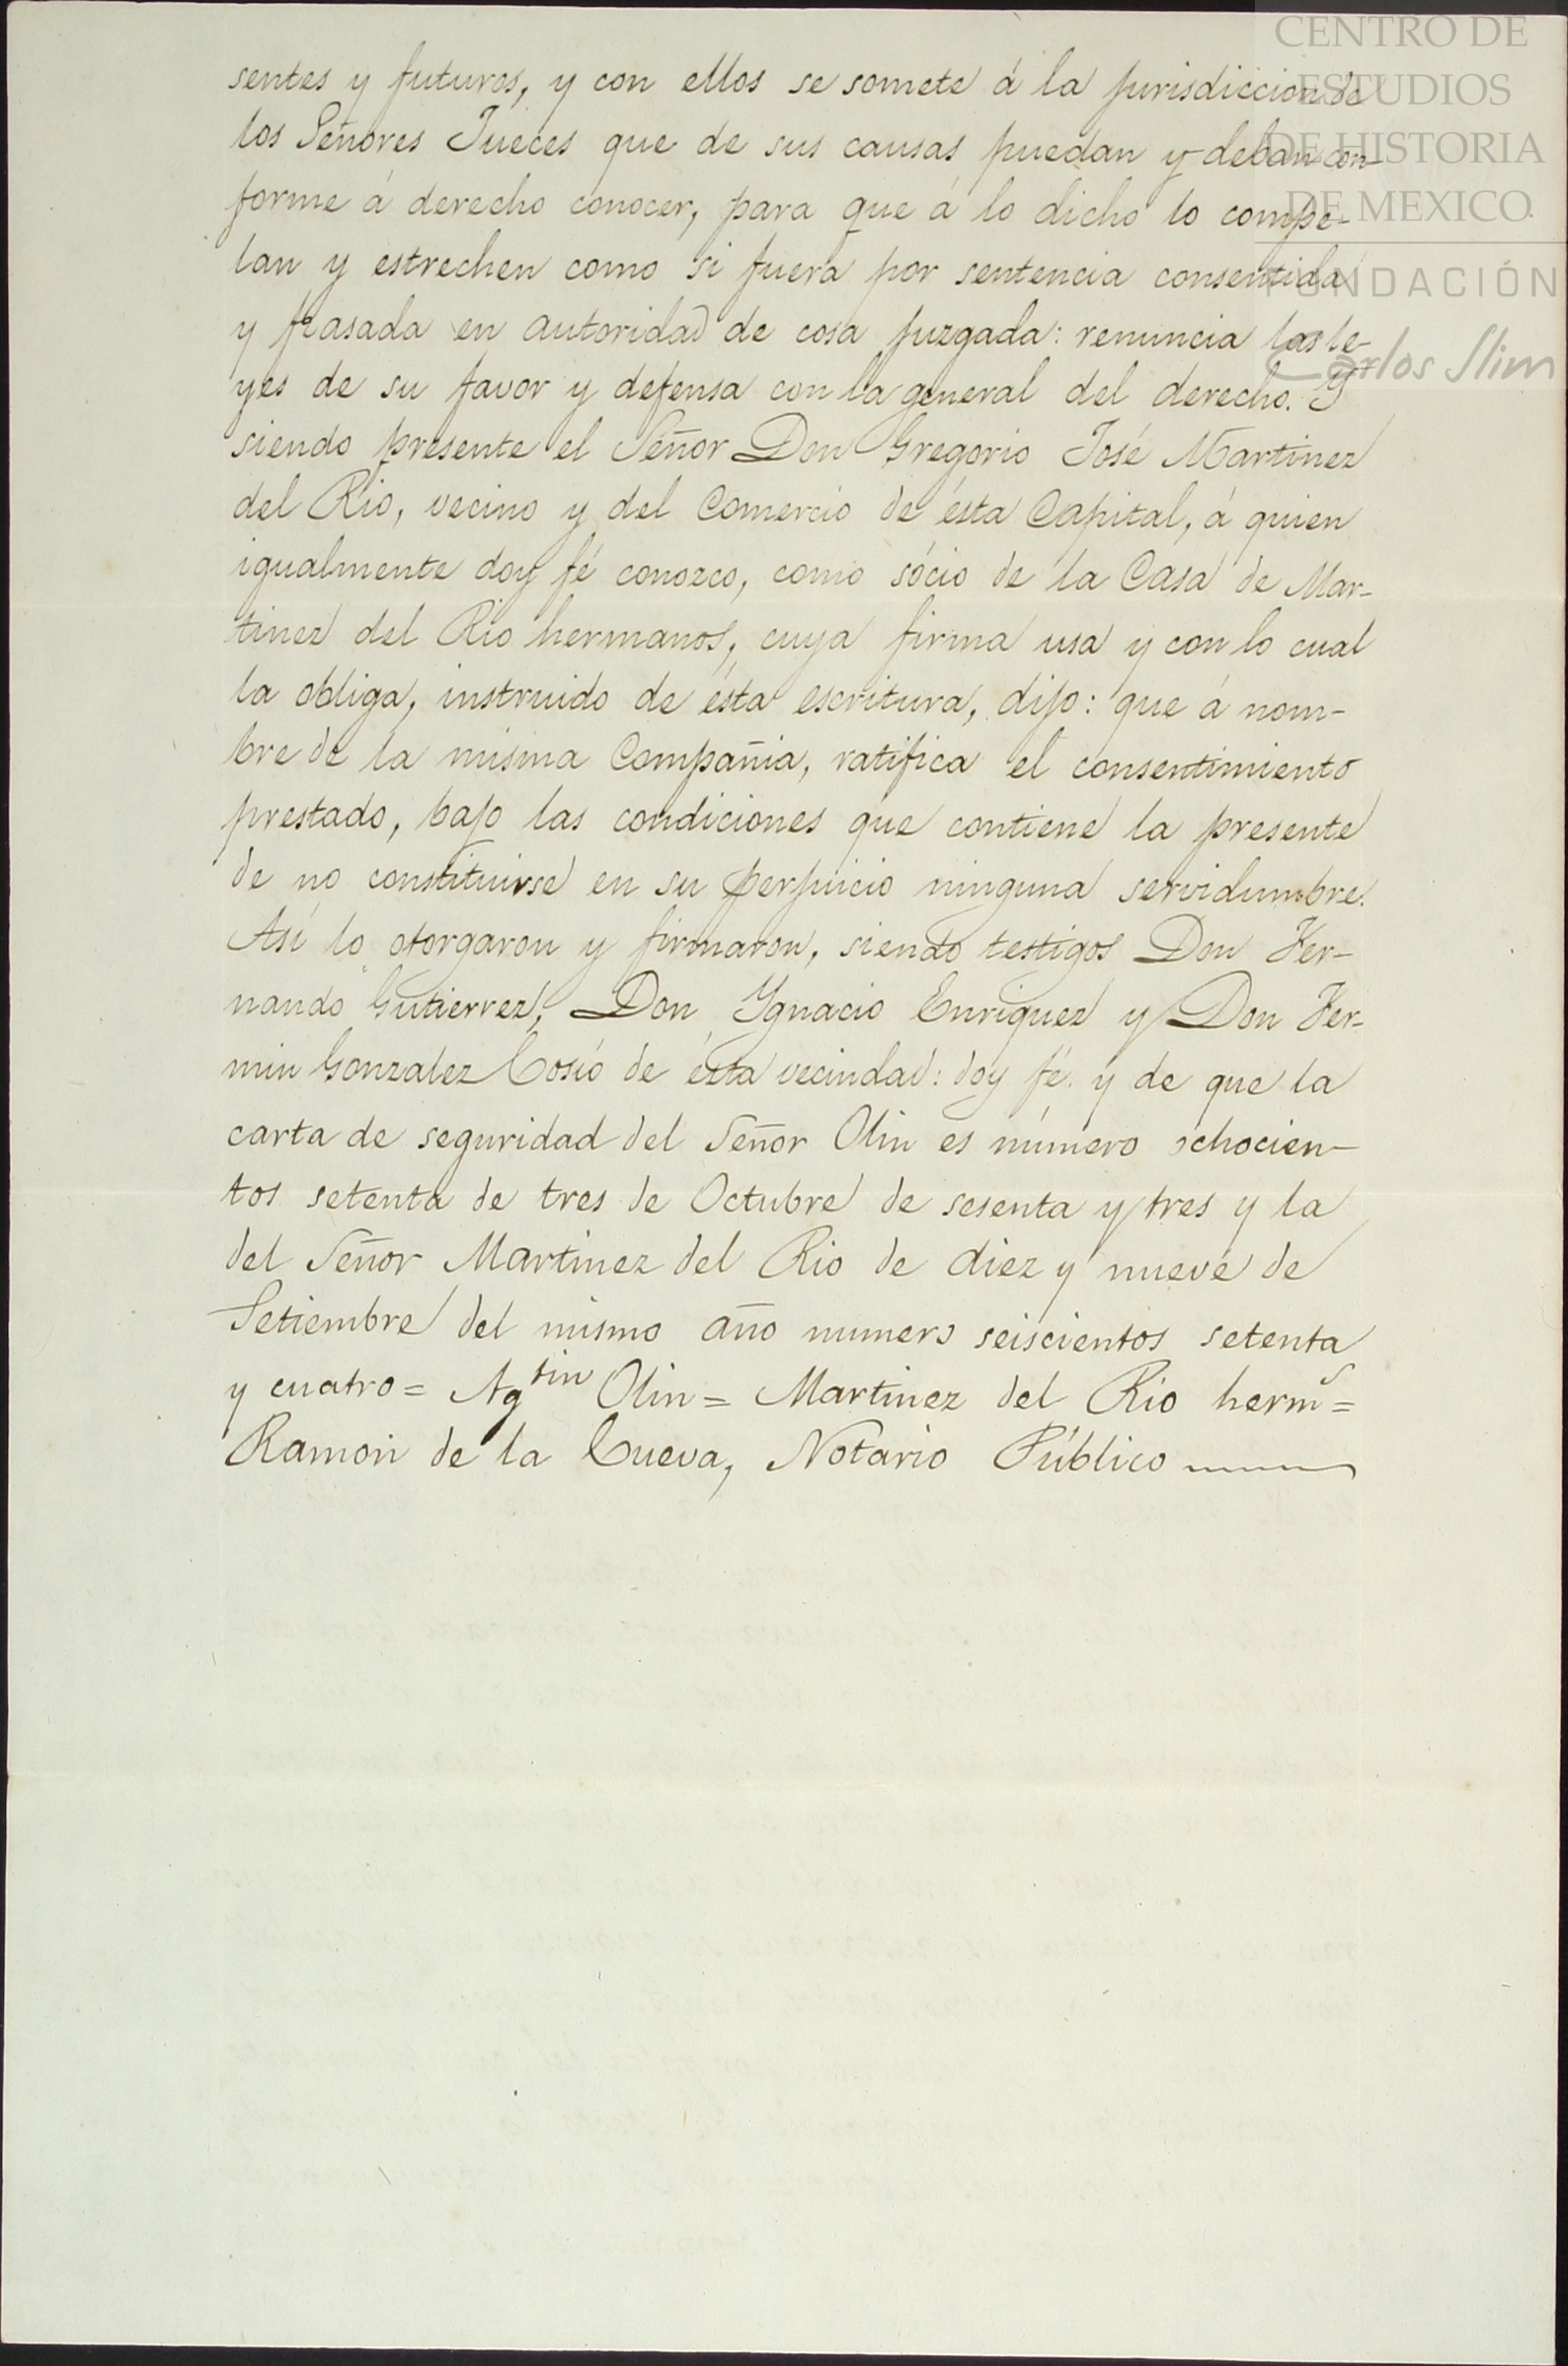 CENTRO DE
ESTUDIOS
DE HISTORIA
DE MEXICO.
FUNDACIÓN
Carlos Slim
sentes y futuros, y con ellos se somete á la jurisdiccion de
los Señores Jueces que de sus causas puedan y deban con-
forme á derecho conocer, para que á lo dicho lo compe-
lan y estrechen como si fuera por sentencia consentida
y pasada en autoridad de cosa juzgada: renuncia las le-
yes de su favor y defensa con la general del derecho. Y
siendo presente el Señor Don Gregorio José Martinez
del Rio, vecino y del Comercio de ésta Capital, á quien
igualmente doy fé conozco, como sócio de la Casa de Mar-
tinez del Rio hermanos, cuya firma usa y con lo cual
la obliga, instruido de ésta escritura, dijo: que á nom-
bre de la misma Compañia, ratifica el consentimiento
prestado, bajo las condiciones que contiene la presente
de no constituirse en su perjuicio ninguna servidumbre.
Así lo otorgaron y firmaron, siendo testigos Don Fer-
nando Gutierrez, Don Ygnacio Enriquez y Don Fer-
min Gonzalez Cosió de ésta vecindad: doy fé. y de que la
carta de seguridad del Señor Olin es número ochocien-
tos setenta de tres de Octubre de sesenta y tres y la
del Señor Martinez del Rio de diez y nueve de
Setiembre del mismo año numero seiscientos setenta
y cuatro = Agtin Olin = Martinez del Rio herms =
Ramon de la Cueva, Notario Público